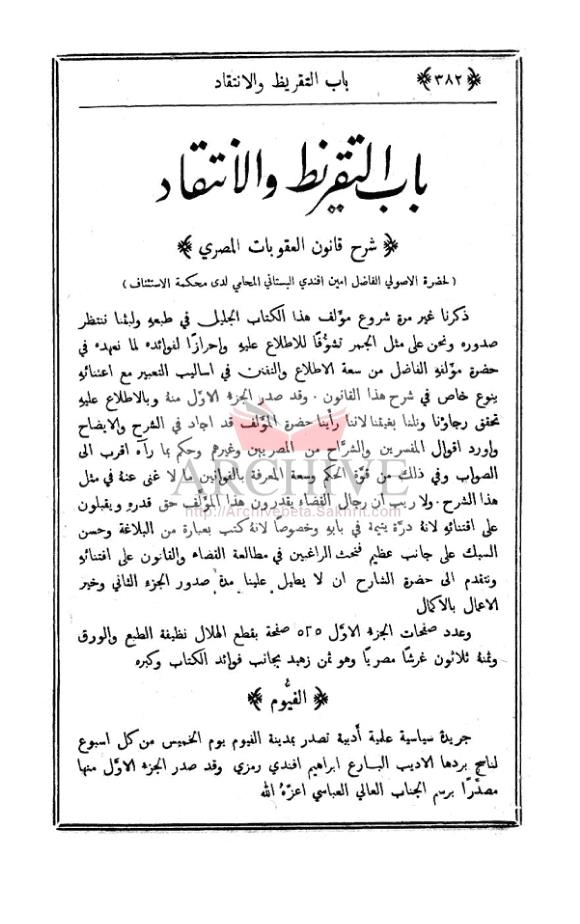 ﴿٣٨٢﴾ باب التقريظ والانتقاد
باب التقريظ والانتقاد
﴿ شرح قانون العقوبات المصري ﴾
(لحضرة الاصولي الفاضل امين افندي البستاني المحامي لدى محكمة الاستئناف)
ذكرنا غير مرة شروع مؤلف هذا الكتاب الجليل في طبعهِ ولبثنا ننتظر
صدوره ونحن على مثل الجمر تشوُّقًا للاطلاع عليهِ واحرازًا لفوائده لما نعهده في
حضرة مؤلفهِ الفاضل من سعة الاطلاع والتفنن في اساليب التعبير مع اعتنائهِ
بنوع خاص في شرح هذا القانون . وقد صدر الجزء الاوّل منهُ وبالاطلاع عليهِ
تحقق رجاؤنا ونلنا بغيتنا لاننا رأينا حضرة المؤلف قد اجاد في الشرح والايضاح
واورد اقوال المفسرين والشرَّاح من المصريين وغيرهم وحكم بما رآه اقرب الى
الصواب وفي ذلك من قوَّة الحكم وسعة المعرفة بالقوانين ما لا غنى عنهُ في مثل
هذا الشرح . ولا ريب ان رجال القضاء يقدرون هذا المؤلف حق قدره ويقبلون
على اقتنائهِ لانهُ درَّة يتيمة في بابهِ وخصوصًا لانهُ كتب بعبارة من البلاغة وحسن
السبك على جانب عظيم فنحث الراغبين في مطالعة القضاء والقانون على اقتنائهِ
ونتقدم الى حضرة الشارح ان لا يطيل علينا مدة صدور الجزء الثاني وخير
الاعمال بالاكمال
وعدد صفحات الجزء الاوّل ٥٢٥ صفحة بقطع الهلال نظيفة الطبع والورق
وثمنهُ ثلاثون غرشًا مصريًّا وهو ثمن زهيد بجانب فوائد الكتاب وكبره
﴿ الفيُّوم ﴾
جريدة سياسية علمية أدبية تصدر بمدينة الفيوم يوم الخميس من كل اسبوع
لناسج بردها الاديب البارع ابراهيم افندي رمزي وقد صدر الجزء الاوّل منها
مصدَّرًا برسم الجناب العالي العباسي اعزّهُ الله
ARCHIVE
http://Archivebeta.Sakhrit.com